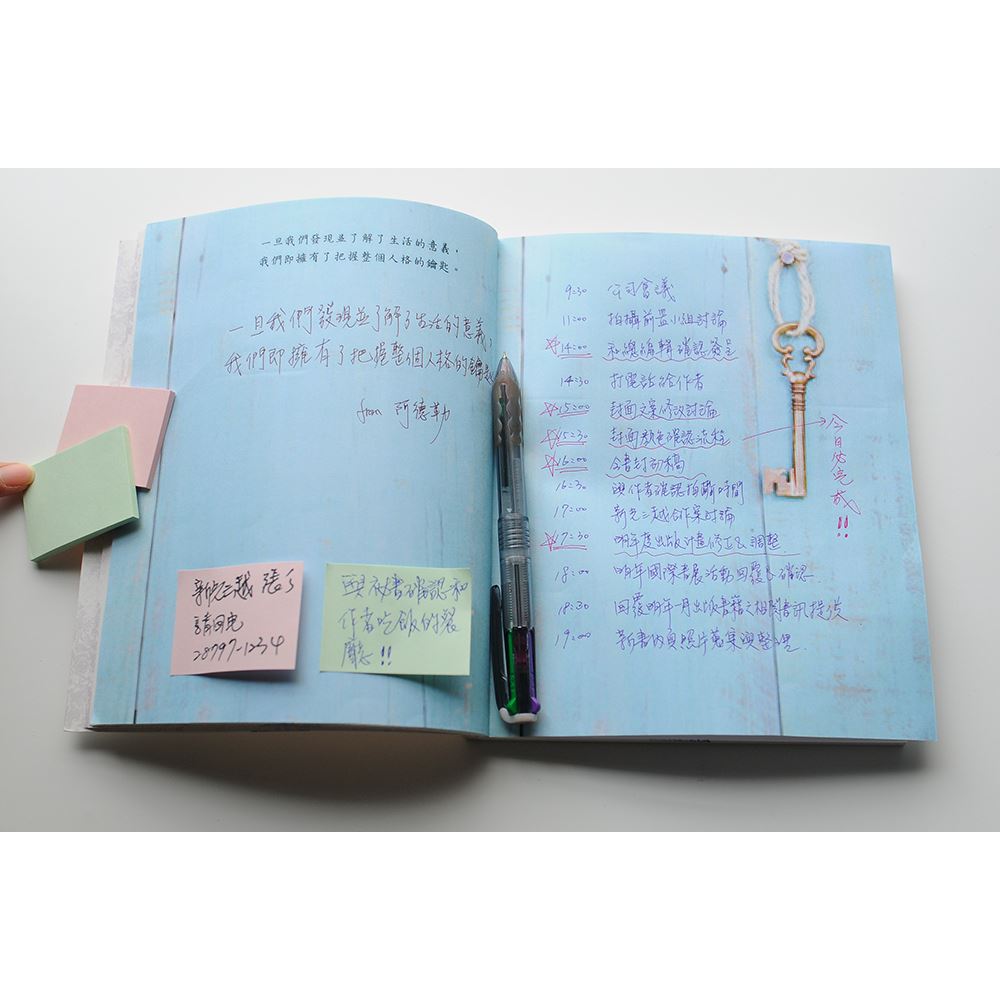 一旦我們發現並了解了生活的意義，
我們即擁有了把握整個人格的鑰匙。
一旦我們發現並了解了生活的意義，
我們即擁有了把握整個人格的鑰匙
from 阿德勒
新光三越 張
請回電
28797-1234
與秘書確認和
作者吃飯的餐
廳!!
9:30 公司會議
11:00 拍攝前置小組討論
☆14:00 和總編輯確認發呈
14:30 打電話給作者
☆15:00 封面文案修改討論
☆15:30 封面顏色確認流程
☆16:00 全書封初稿
16:30 與作者確認拍攝時間
17:00 新光三越合作案討論
☆17:30 明年度出版計畫修正&調整
18:00 明年國際書展活動回覆&確認
18:30 回覆明年一月出版書籍之相關書訊提供
19:00 新書內頁照片蒐集與整理.
今日必完成!!